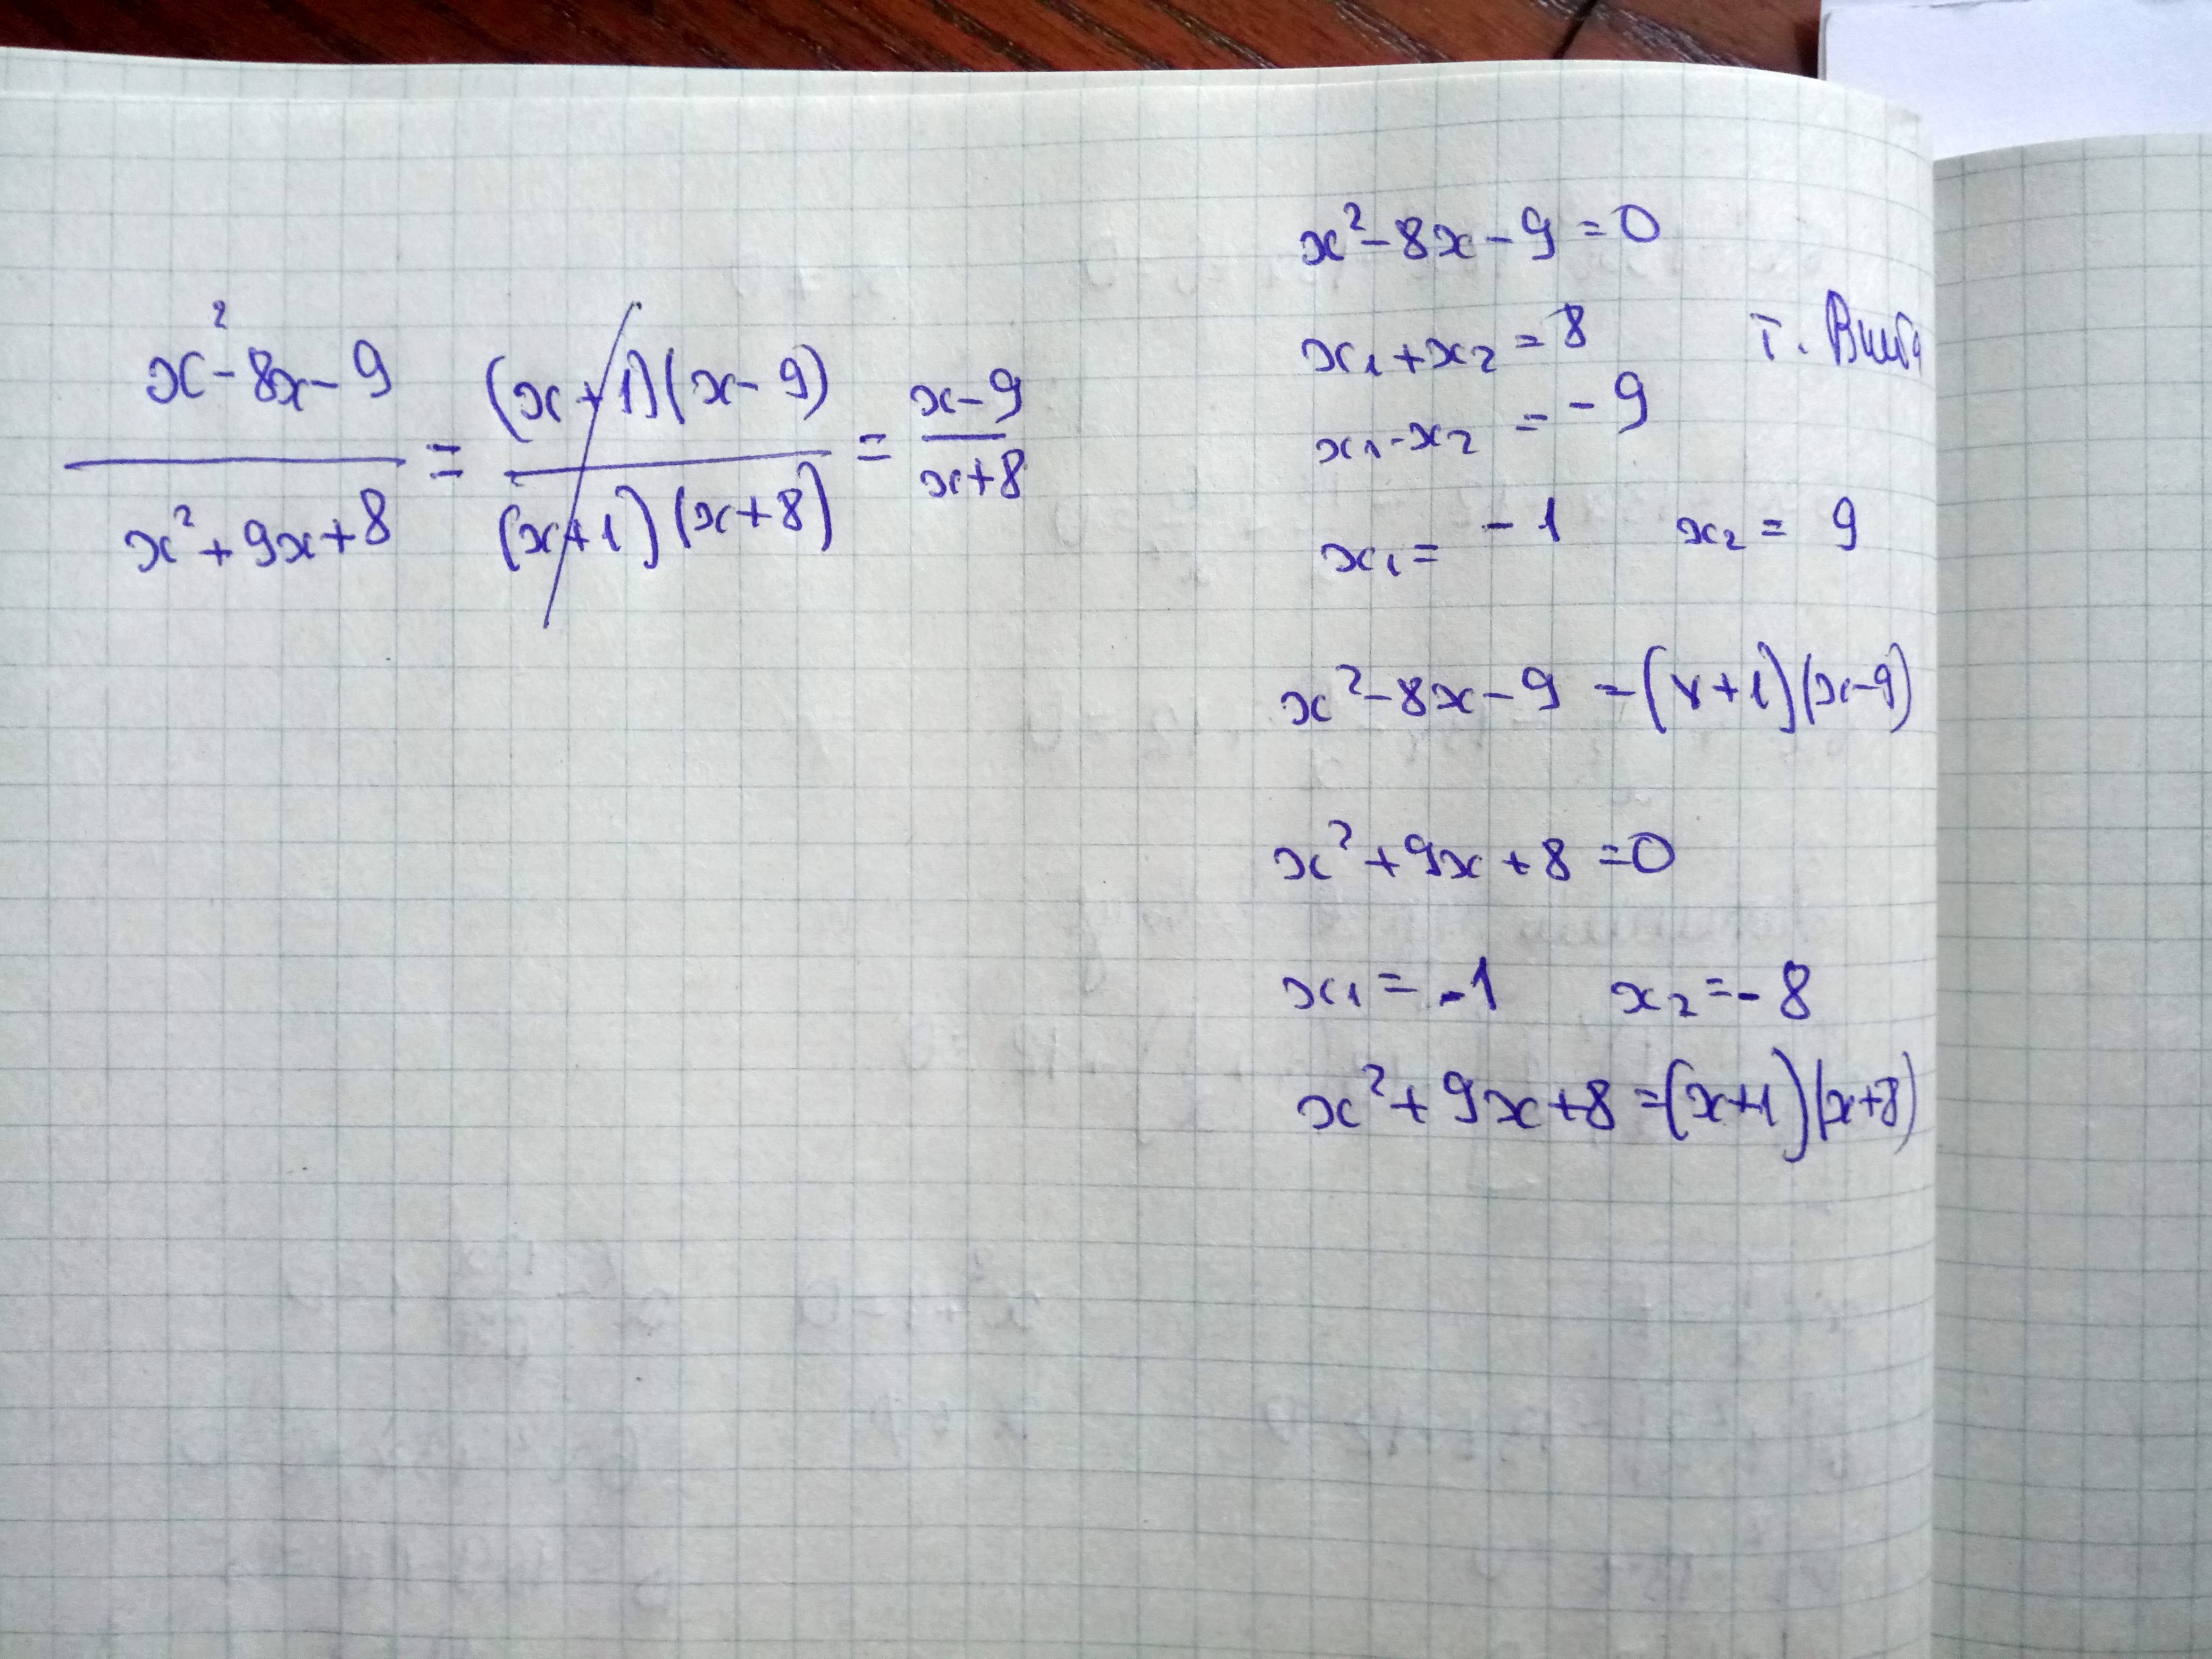 x² - 8x - 9 / x² + 9x + 8 = (x+1)(x-9) / (x+1)(x+8) = x-9 / x+8
x² - 8x - 9 = 0
x₁ + x₂ = 8 т. Виета
x₁·x₂ = -9
x₁ = -1 x₂ = 9
x² - 8x - 9 = (x+1)(x-9)
x² + 9x + 8 = 0
x₁ = -1 x₂ = -8
x² + 9x + 8 = (x+1)(x+8)